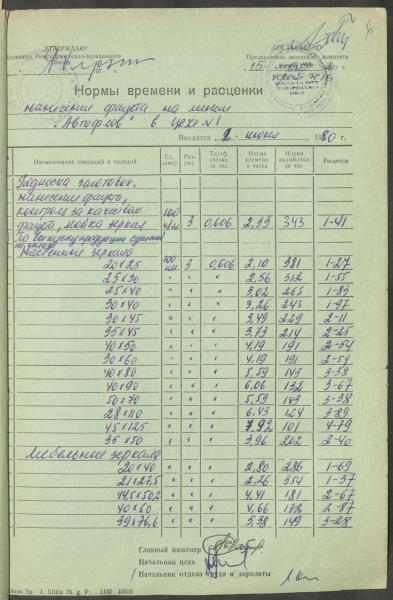 „УТВЕРЖДАЮ"
„СОГЛАСОВАНО"
Директор Рижского стекло-зеркального
Председатель месткового комитета
Нормы времени и расценки
нанесение фацета на линии
"Автофлов" в цехе №1
Вводятся 2 июня 1980 г.
Наименование операций и изделий Ед. измер. Раз-ряд Тариф. ставка за час. Норма времени в часах Норма выработки за час. Расценок
Подноска заготовок,
нанесение фацета,
контроль за качеством
фацета, мойка зеркал 100 3 0,606 2,33 343 1-41
Настенные зеркала
20x25 100 шт. 3 0,606 2,10 381 1-27
25x30 " " " 2,56 312 1-55
25x40 " " " 3,02 265 1-83
30x40 " " " 3,26 245 1-97
30x45 " " " 3,49 229 2-11
35x45 " " " 3,73 214 2-25
40x50 " " " 4,19 191 2-54
30x60 " " " 4,19 191 2-54
40x80 " " " 5,59 143 3-38
40x90 " " " 6,06 132 3-67
50x70 " " " 5,59 143 3-38
28x110 " " " 6,43 124 3-89
45x125 " " " 7,92 101 4-79
35x50 " " " 3,96 202 2-40
Мебельные зеркала
20x40 " " " 2,80 286 1-69
21x27,5 " " " 2,26 354 1-37
44,5x50,2 " " " 4,41 181 2-67
40x60 " " " 4,66 172 2-87
39x76,6 " " " 5,38 149 3-28
Главный инженер
Начальник цеха
Начальник отдела труда и зарплаты